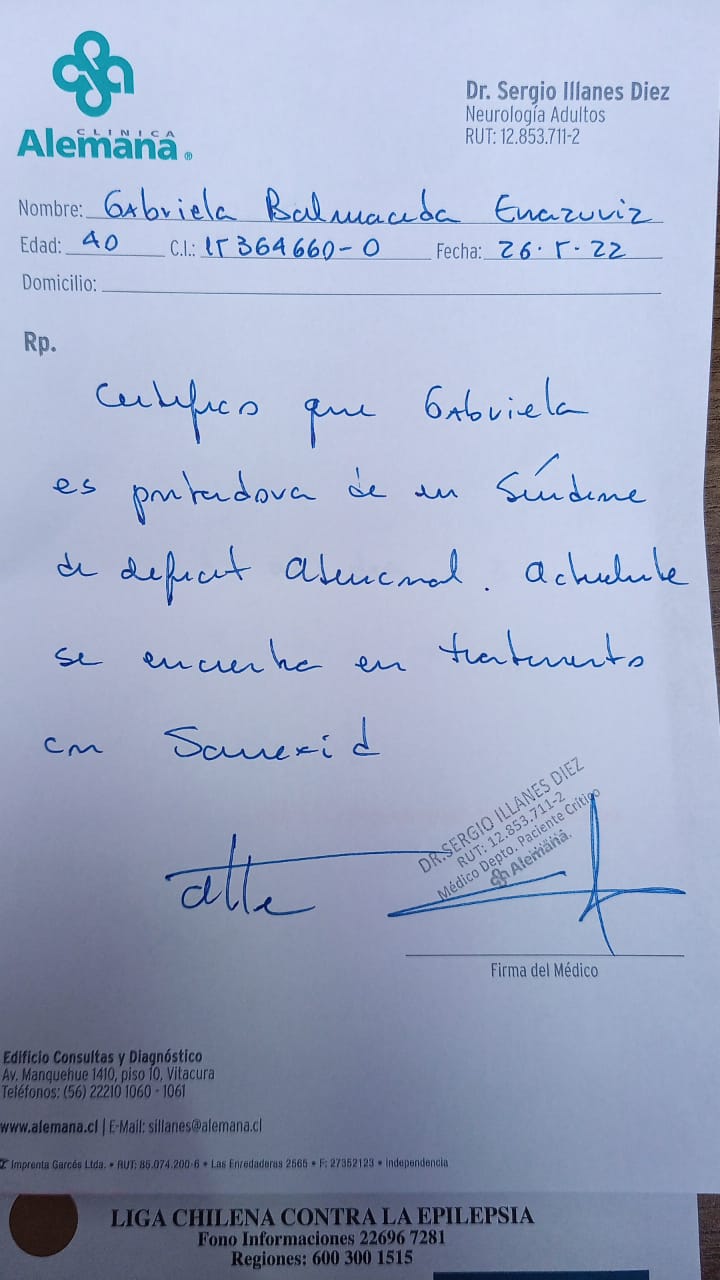 CLINICA
Alemana®
Dr. Sergio Illanes Diez
Neurología Adultos
RUT: 12.853.711-2
Nombre: Gabriela Balmaceda
Edad: 40 C.I.: 15364660-0 Fecha: 26.5.22
Domicilio:
Rp.
Certifico que Gabriela
es portadora de un Síndrome
de deficit atencional. Actualmente
se encuentra en tratamiento
con Samexid
atte
DR.SERGIO ILLANES DIEZ
RUT: 12.853.711-2
Médico Depto. Paciente Crítico
Alemana.
Firma del Médico
Edificio Consultas y Diagnóstico
Av. Manquehue 1410, piso 10, Vitacura
Teléfonos: (56) 22210 1060 - 1061
www.alemana.cl | E-Mail: sillanes@alemana.cl
Imprenta Garcés Ltda. • RUT: 85.074.200-6 • Las Enredaderas 2565 • F: 27352123 • Independencia
LIGA CHILENA CONTRA LA EPILEPSIA
Fono Informaciones 22696 7281
Regiones: 600 300 1515